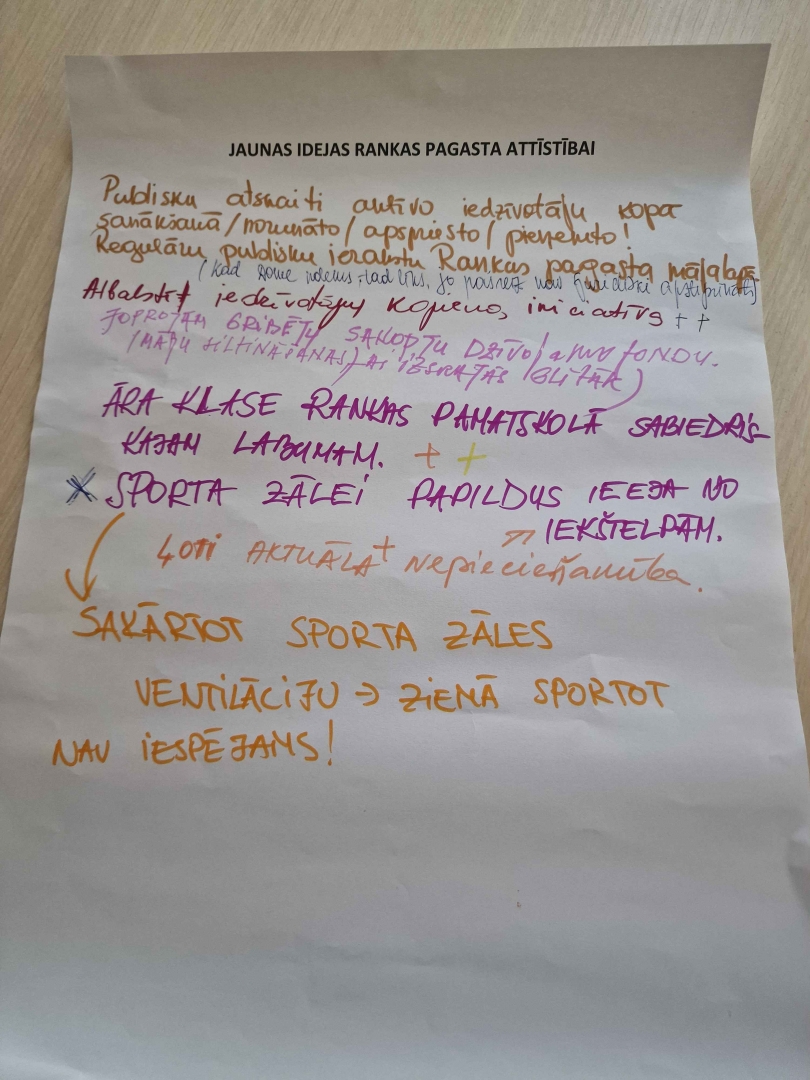 JAUNAS IDEJAS RANKAS PAGASTA ATTĪSTĪBAI
Publisku atskaiti aktīvo iedzīvotāju kopā
sanāksmē/norunāto/apspriesto/pieņemto!
Regulāru publisku ierakstu Rankas pagasta mājaslapā
(kad dome, jo nav juridiski apstiprināts)
Atbalstīt iedzīvotāju kopienas iniciatīvas ++
JOPROJĀM GRIBĒTU SAKOPTU DZĪVOJAMO FONDU.
(MĀJU SILTINĀŠANAS)
ĀRA KLASE RANKAS PAMATSKOLĀ SABIEDRIS-
KAJAM LABUMAM. + +
SPORTA ZĀLEI PAPILDUS IEEJA NO
IEKŠTELPĀM.
ĻOTI AKTUĀLA + nepieciešamība.
SAKĀRTOT SPORTA ZĀLES
VENTILĀCIJU → ZIEMĀ SPORTOT
NAV IESPĒJAMS!